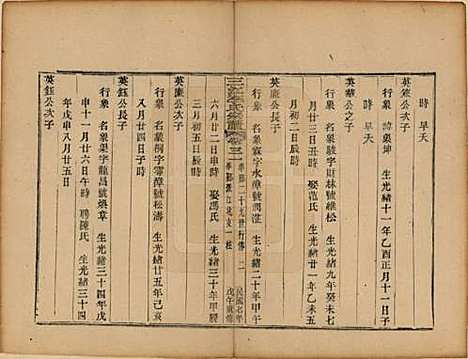 時 早夭
英□公次子
行彖 諱彖坤 生光緒十一年乙酉正月十一日子
時 早夭
英華公之子
行彖 名彖駿字財林號維松 生光緒九年癸未七
月初三日子時 娶范氏 生光緒廿一年乙未五
月
英廉公長子
行彖 名彖宸字水漳號潤淮 生光緒二十年甲午
六月廿二日申時 娶馮氏 生光緒二十年甲午
三月初五日辰時
三江李氏宗譜 卷三二
民國七年
戊午重修
英廉公次子
行彖 名彖桐字澐漳號松濤 生光緒廿五年己亥
八月廿四日子時
英鈺公次子
行彖 名彖棠字龍昌號煥章 生光緒三十四年戊
申十一月廿六日午時 聘陳氏 生光緒三十四
年戊申八月廿五日